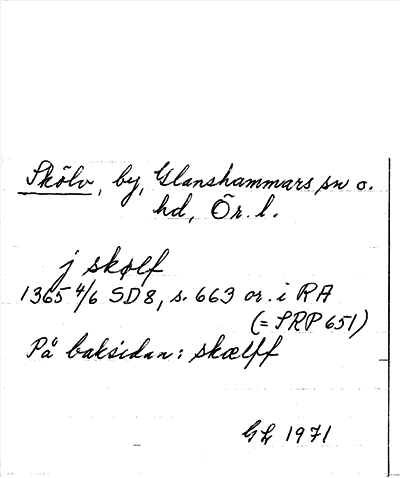 Skölv, by, Glanshammars sn o.
hd, Ör. l.
j skølf
1365 4/6 SD8, s. 663 or. i RA
(= SRP 651)
På baksidan: skælff
GL 1971